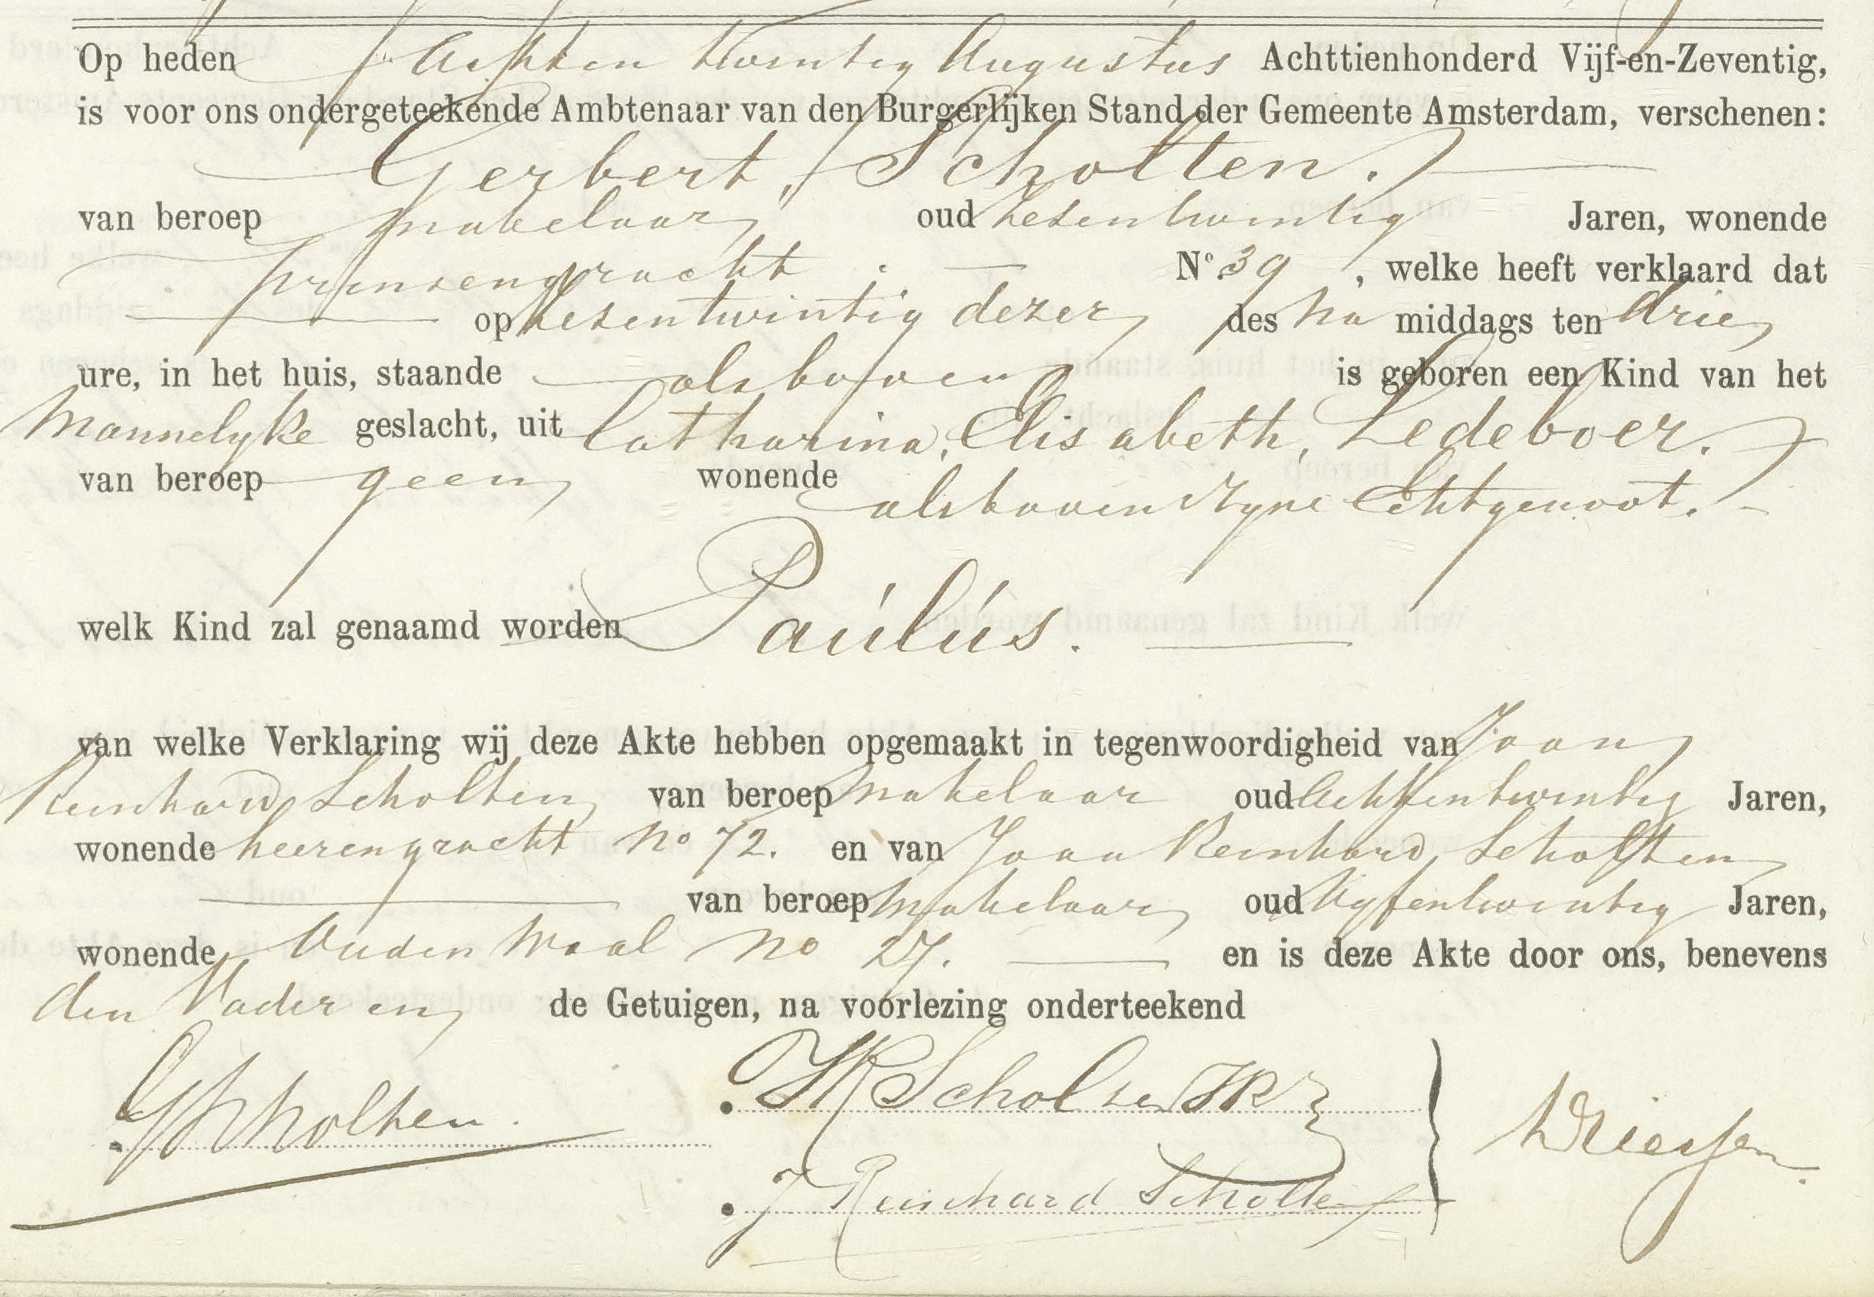 Op heden Achten twintig Augustus Achttienhonderd Vijf-en-Zeventig,
is voor ons ondergeteekende Ambtenaar van den Burgerlijken Stand der Gemeente Amsterdam, verschenen:
Gerbert, Scholten.
van beroep makelaar oud zesentwintig Jaren, wonende
prinsengracht. No. 39, welke heeft verklaard dat
op zesentwintig dezer des na middags ten drie
ure, in het huis, staande alsboven is geboren een Kind van het
Mannelyke geslacht, uit Catharina, Elisabeth, Ledeboer.
van beroep geen wonende alsboven zyne Echtgenoot.
welk Kind zal genaamd worden Paúlús.
van welke Verklaring wij deze Akte hebben opgemaakt in tegenwoordigheid van Joan
Reinhard Scholten van beroep makelaar oud Achtentwintig Jaren,
wonende heerengracht no 72. en van Joan Reinhard Scholten
van beroep makelaar oud Vyfentwintig Jaren,
wonende Ouden Waal no 27. en is deze Akte door ons, benevens
den Vader en de Getuigen, na voorlezing onderteekend
GScholten.
JRScholten JRz
J Reinhard Scholten